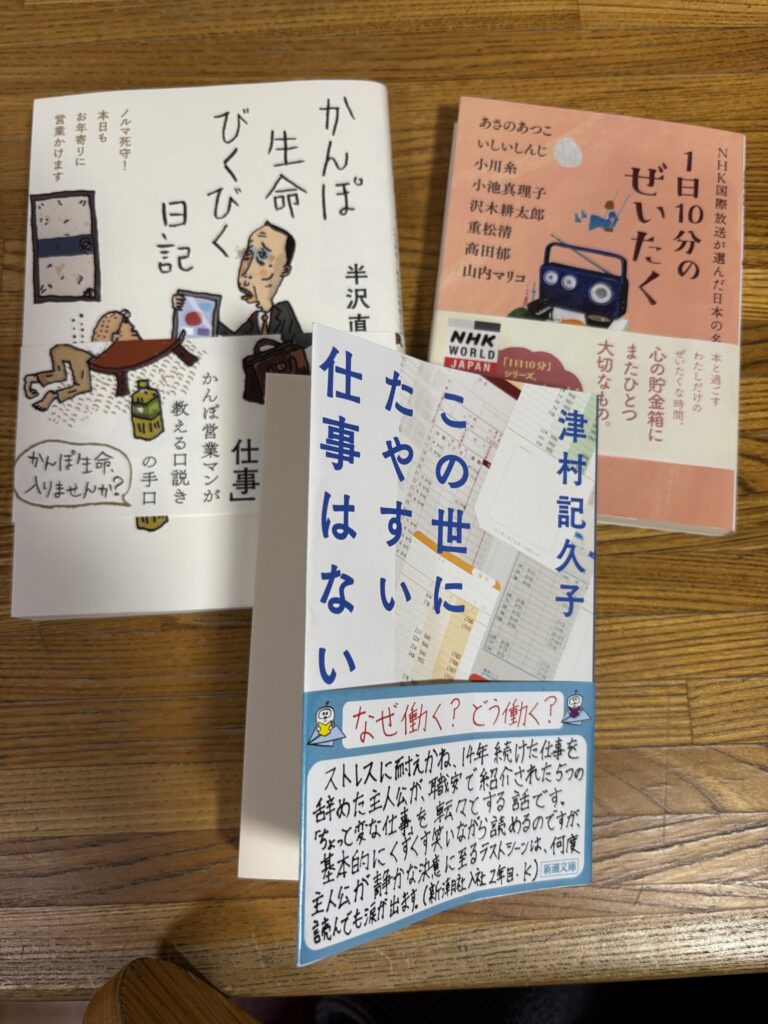 かんぽ
生命
びくびく
日記
半沢直
ノルマ死守!
本日も
お年寄りに
営業かけます
仕事」
かんぽ営業マンが
教える口説き
の手口
かんぽ生命、
入りませんか?
NHK国際放送が選んだ日本の名
1日10分の
ぜいたく
あさのあつこ
いしいしんじ
小川糸
小池真理子
沢木耕太郎
重松清
髙田郁
山内マリコ
NHK
WORLD
JAPAN
「1日10分」
シリーズ、
本と過ごす
わたしだけの
ぜいたくな時間。
心の貯金箱に
またひとつ
大切なもの。
津村記久子
この世に
たやすい
仕事はない
なぜ働く? どう働く?
ストレスに耐えかね、14年続けた仕事を
辞めた主人公が、職安で紹介された5つの
「ちょっと変な仕事」を転々とする話です。
基本的にくすくす笑いながら読めるのですが、
主人公が静かな決意に至るラストシーンは、何度
読んでも涙が出ます。(新潮社入社2年目・K)
新潮文庫